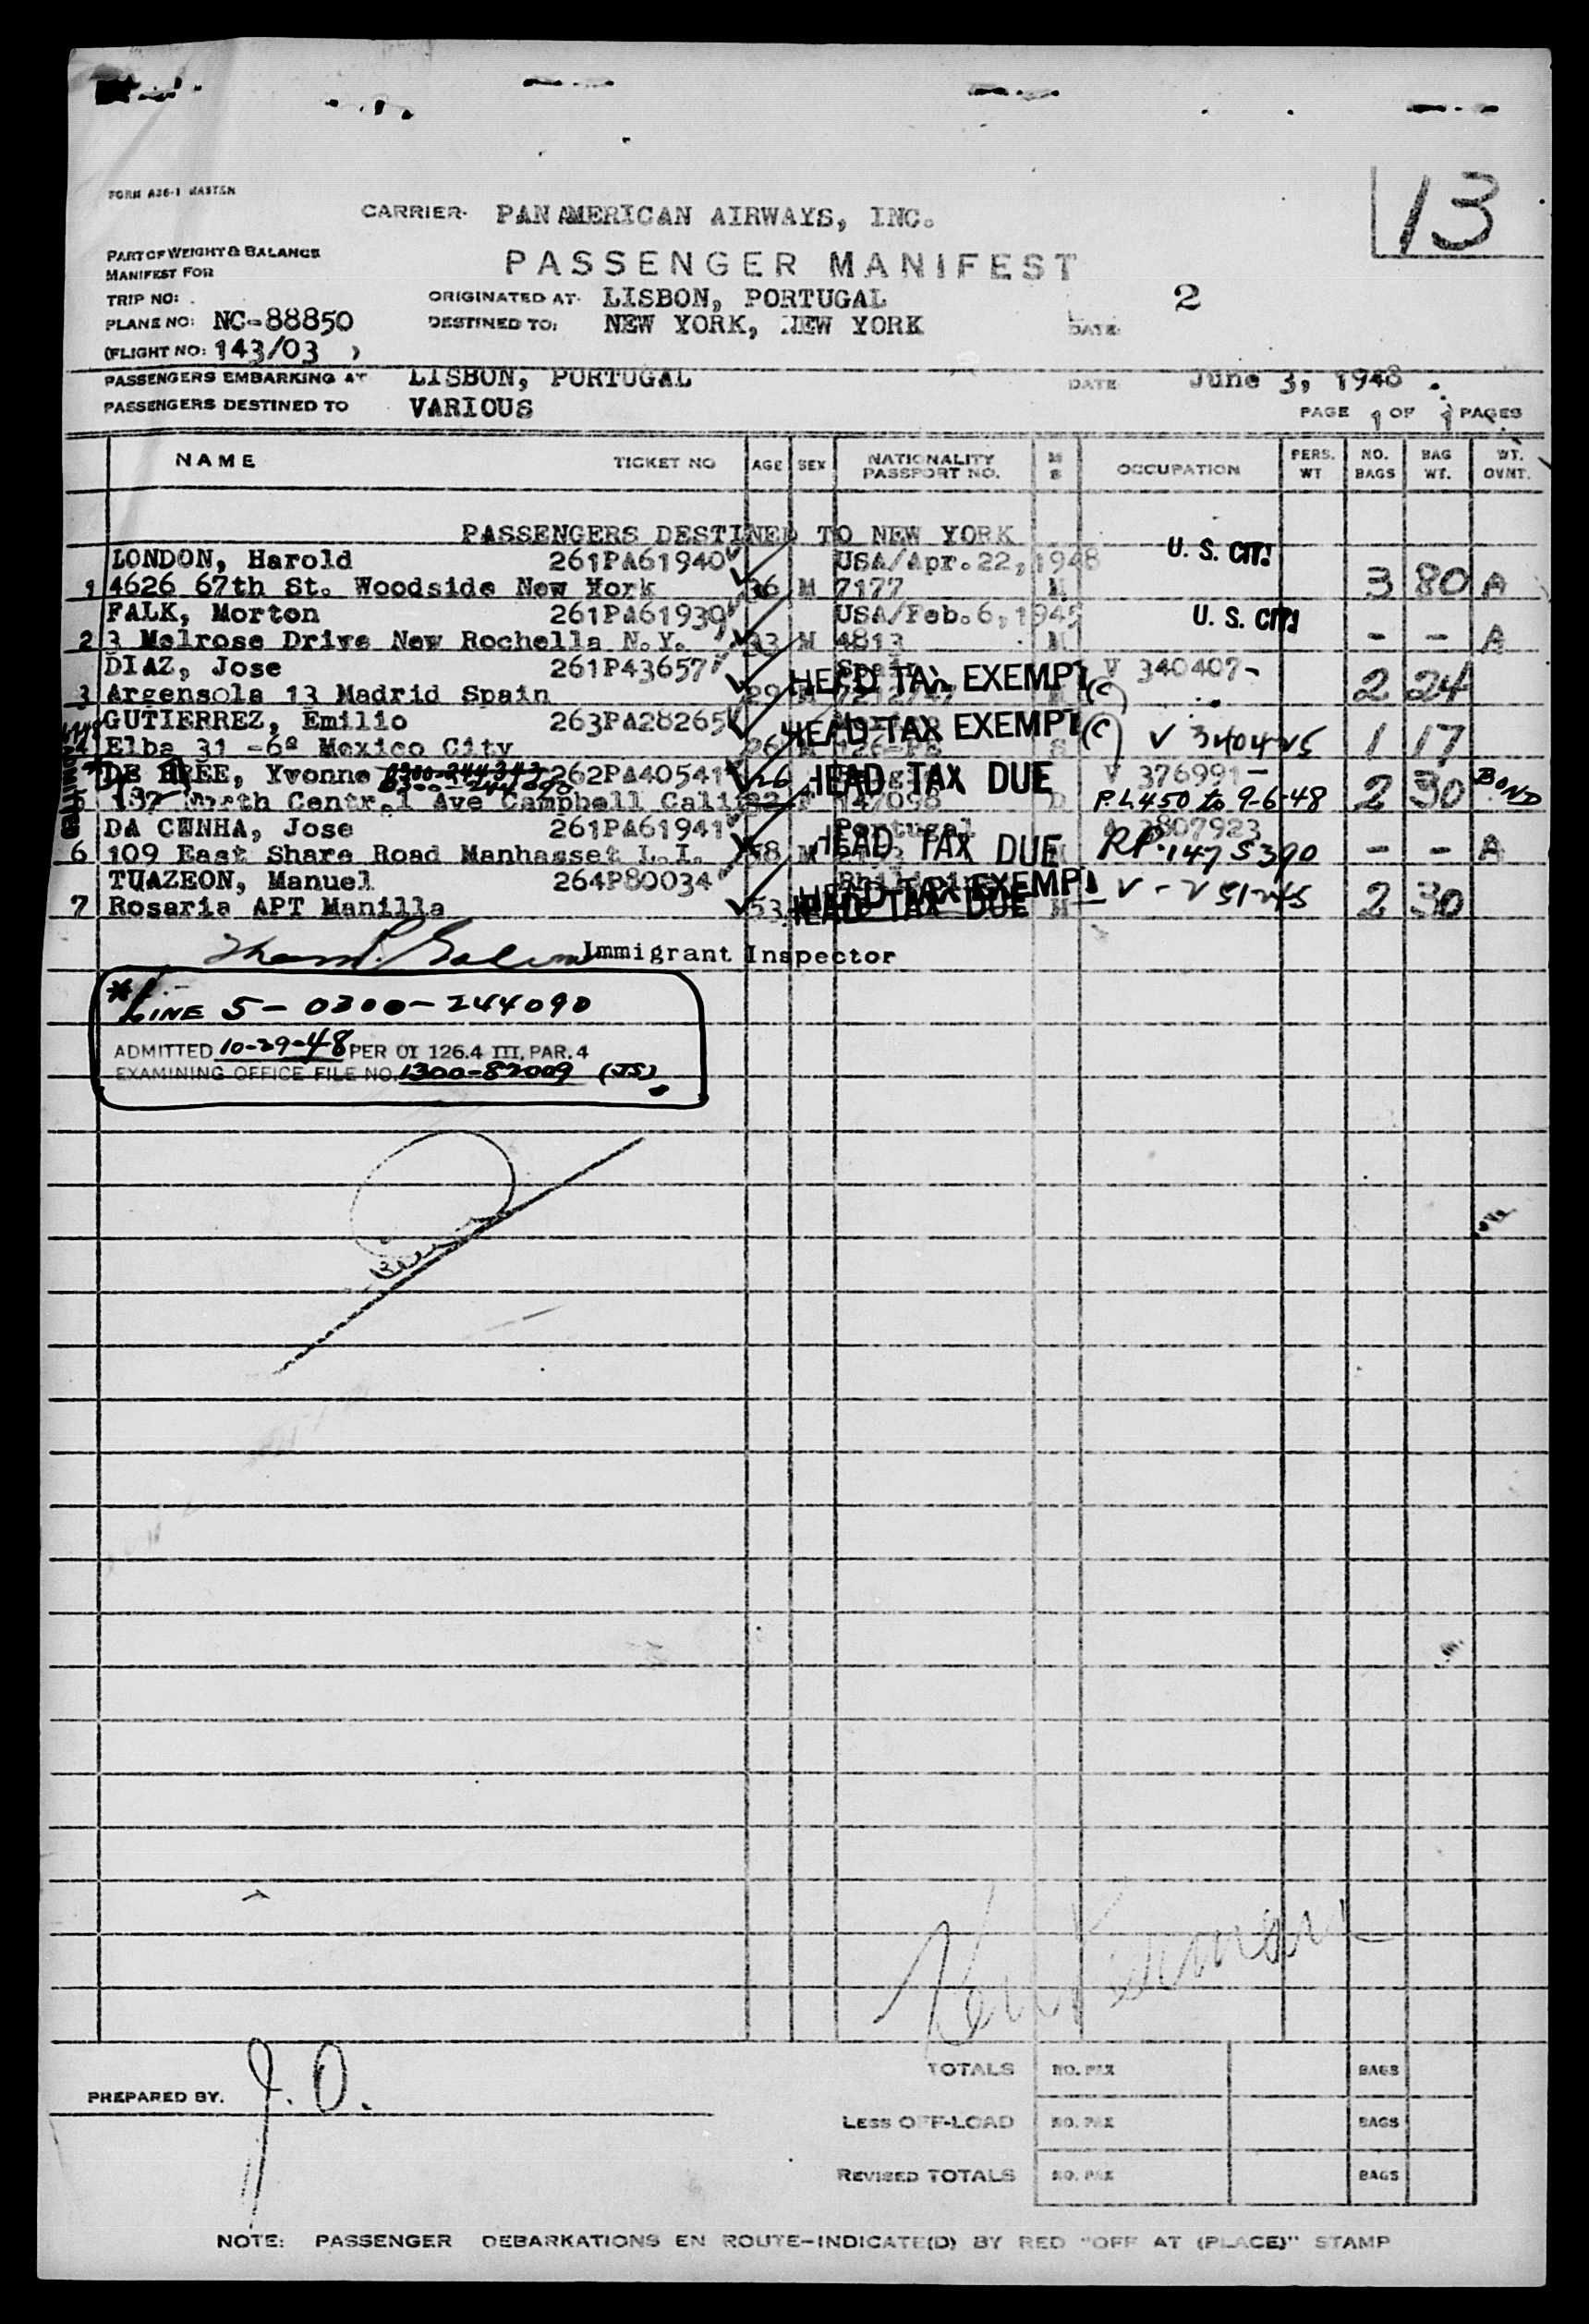 13
FORM A36-1 MASTER
CARRIER- PAN AMERICAN AIRWAYS, INC.
PART OF WEIGHT & BALANCE
MANIFEST FOR
PASSENGER MANIFEST
TRIP NO:
ORIGINATED AT- LISBON, PORTUGAL 2
PLANE NO: NC-88850 DESTINED TO: NEW YORK, NEW YORK DATE
(FLIGHT NO: 143/03 )
PASSENGERS EMBARKING AT LISBON, PORTUGAL DATE June 3, 1948
PASSENGERS DESTINED TO VARIOUS PAGE 1 OF 1 PAGES
NAME TICKET NO AGE SEX NATIONALITY PASSPORT NO. M S OCCUPATION PERS. WT NO. BAGS BAG WT. WT. OVNT.
PASSENGERS DESTINED TO NEW YORK
LONDON, Harold 261PA61940 USA/Apr.22,1948 U. S. CIT.
1 4626 67th St. Woodside New York 36 M 7177 M 3 80 A
FALK, Morton 261PA61939 USA/Feb.6,1945 U. S. CIT.
2 3 Melrose Drive New Rochella N.Y. 33 M 4813 M - - A
DIAZ, Jose 261P43657 Spain HEAD TAX EXEMPT (C) V 340407-
3 Argensola 13 Madrid Spain 29 M 2 24
GUTIERREZ, Emilio 263PA28265 HEAD TAX EXEMPT (C) V 340425
4 Elba 31 -6º Mexico City 26 M 126-PE S 1 17
DE BREE, Yvonne 0300-244343 0300-244090 262PA40541 26 HEAD TAX DUE V 376991-
5 137 North Central Ave Campbell Cali F 147098 D P.L 450 to 9-6-48 2 30 BOND
DA CUNHA, Jose 261PA61941 Portugal HEAD TAX DUE A 3807923
6 109 East Share Road Manhasset L.I. 58 M RP.1475390 - - A
TUAZEON, Manuel 264P80034 HEAD TAX EXEMPT V - V 51245
7 Rosaria APT Manilla 53 HEAD TAX DUE M 2 30
Immigrant Inspector
* LINE 5 - 0300-244090
ADMITTED 10-29-48 PER OI 126.4 III, PAR. 4
EXAMINING OFFICE FILE NO. 1300-82009 (JS)
PREPARED BY. J. O.
TOTALS NO. PAX BAGS
LESS OFF-LOAD NO. PAX BAGS
REVISED TOTALS NO. PAX BAGS
NOTE: PASSENGER DEBARKATIONS EN ROUTE-INDICATE(D) BY RED "OFF AT (PLACE)" STAMP